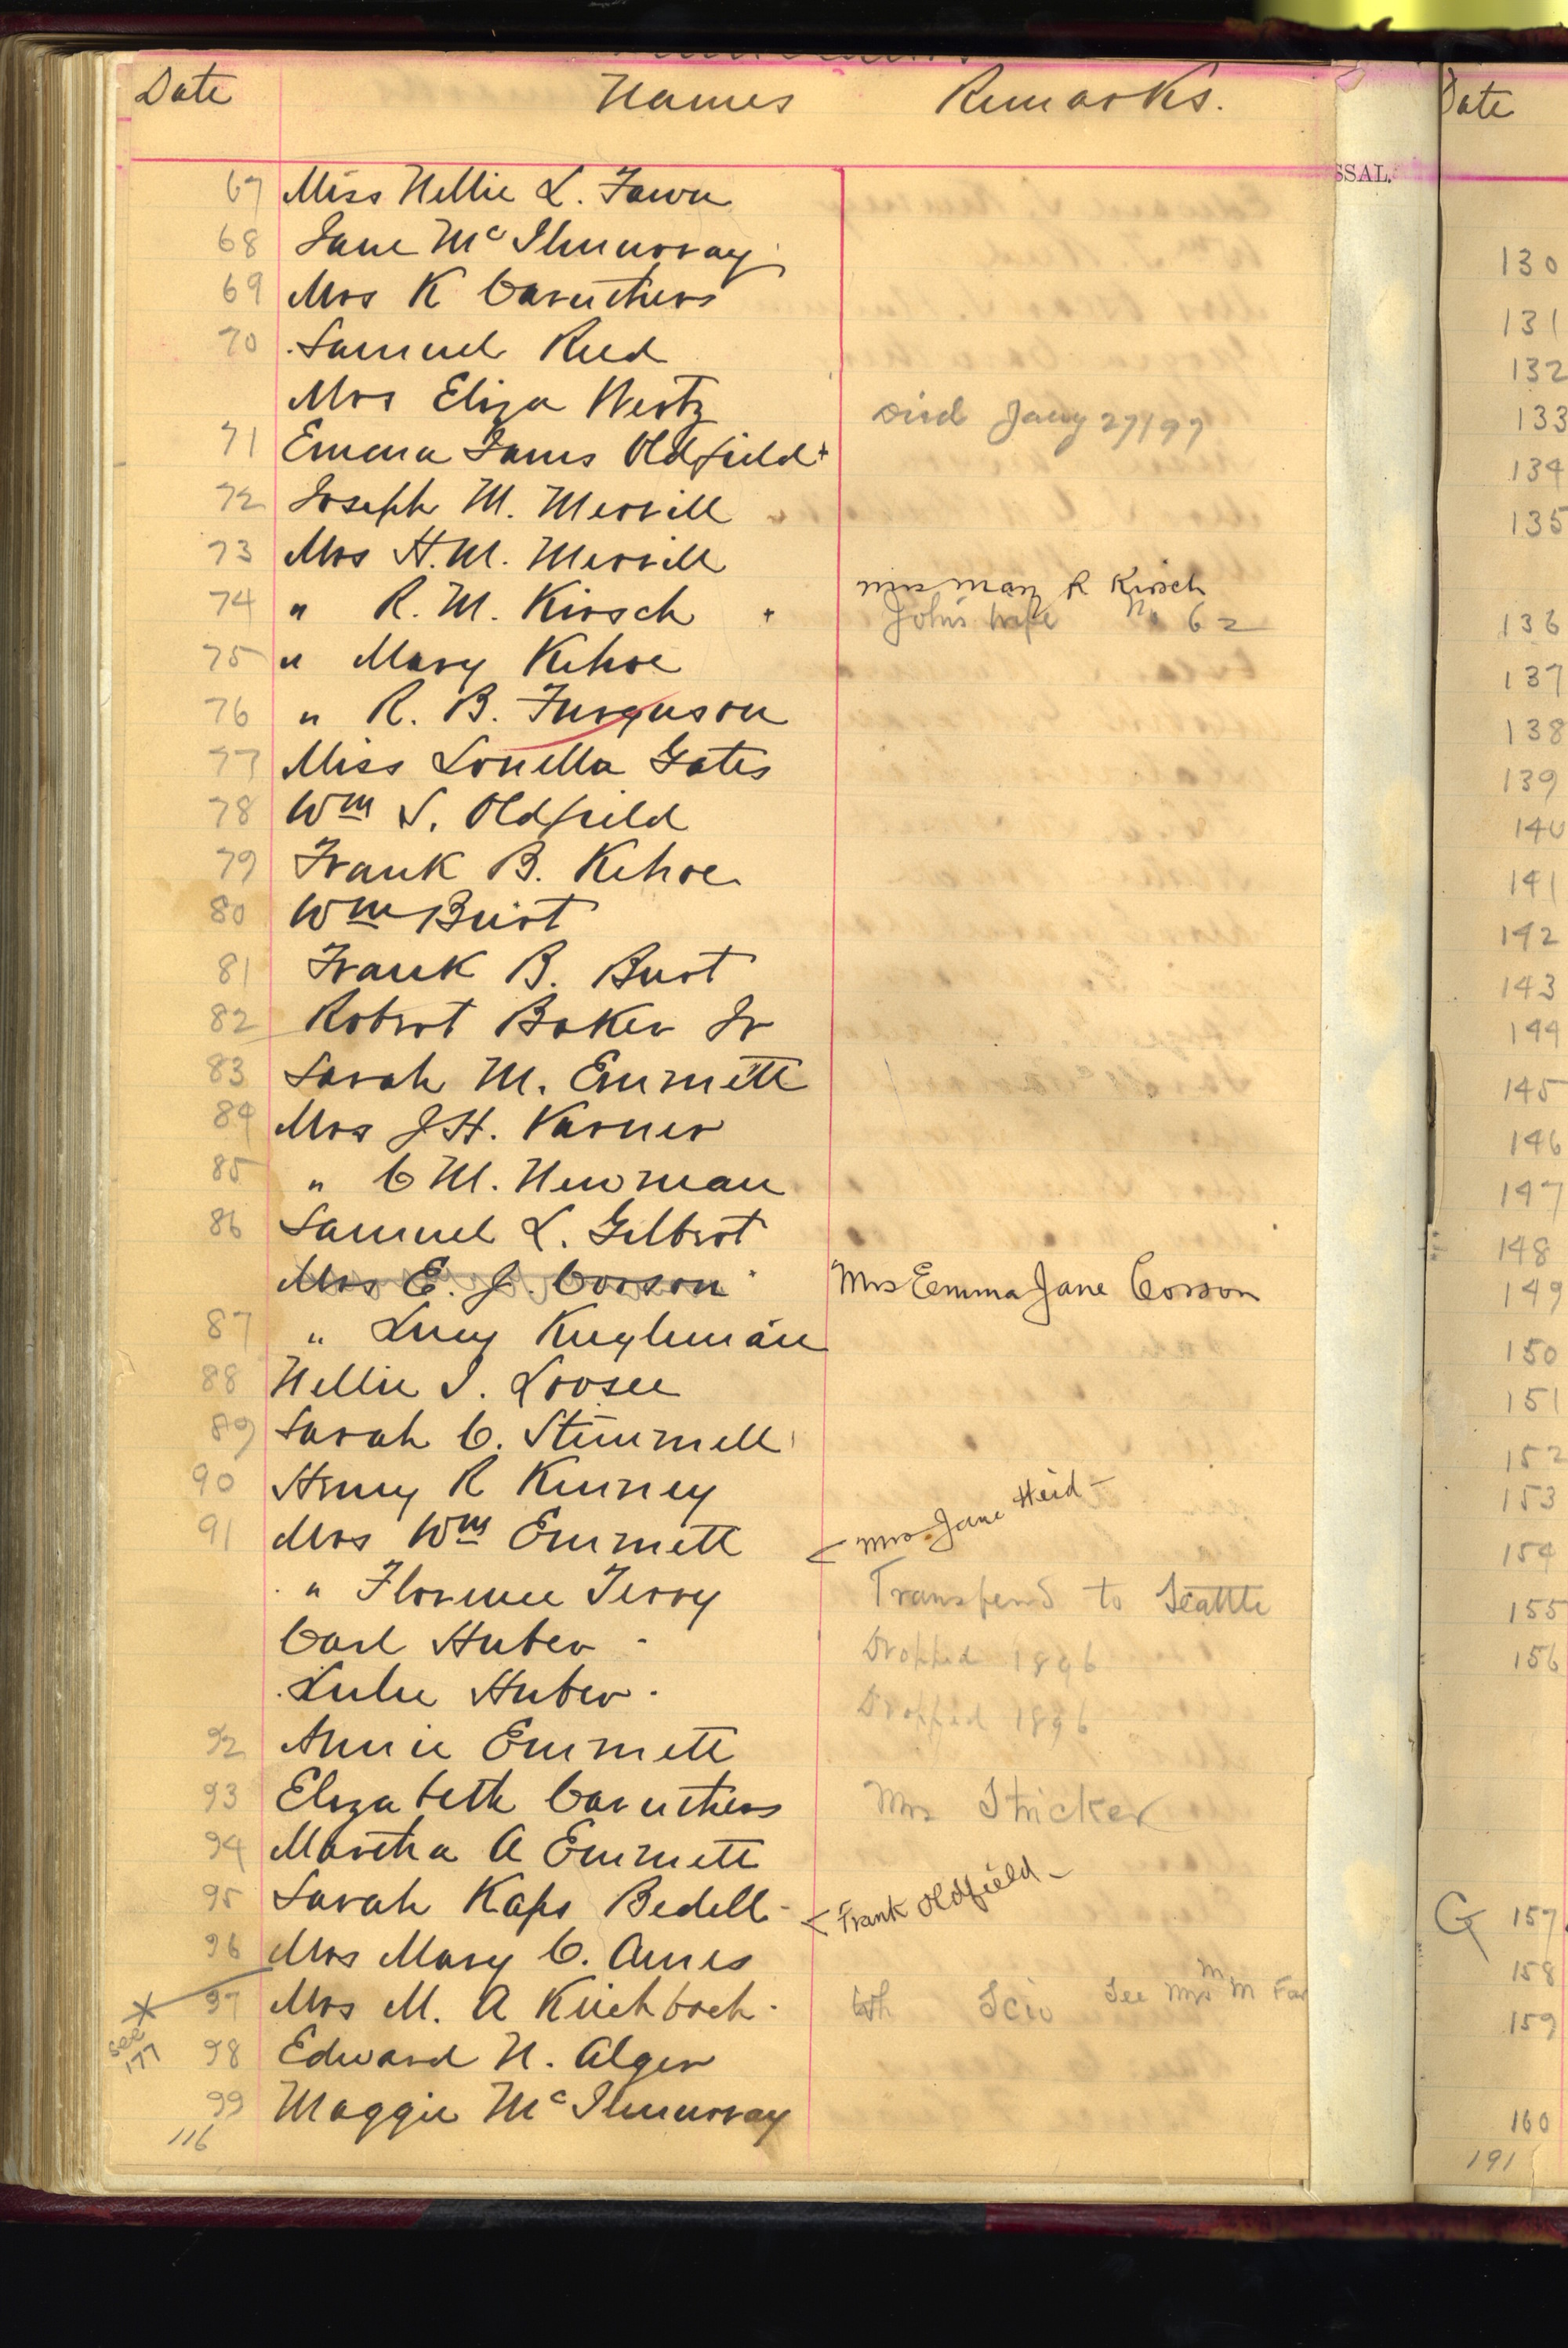 Date Names Remarks.
67 Miss Nellie L. Fawn
68 Jane McIlmurray
69 Mrs K Caruthers
70 Samuel Reed
Mrs Eliza Wertz Died Jany 27/97
71 Emma James Oldfield +
72 Joseph M. Merrill
73 Mrs H. M. Merrill
74 " R. M. Kirsch + Mrs Mary R Kirsch
John's wife No 62
75 " Mary Kehoe
76 " R. B. Furguson
77 Miss Louella Gates
78 Wm S. Oldfield
79 Frank B. Kehoe
80 Wm Burt
81 Frank B. Burt
82 Robert Baker Jr
83 Sarah M. Emmett
84 Mrs J H. Varner
85 " C M. Newman
86 Samuel L. Gilbert
Mrs E. J. Corson Mrs Emma Jane Corson
87 " Lucy Kughman
88 Nellie I. Loosee
89 Sarah C. Stimmell
90 Henry R Kinney
91 Mrs Wm Emmett < Mrs. Jane Heid -
" Florence Terry Transferd to Seattle
Carl Huber - Dropped 1896
Lulie Huber - Dropped 1896
92 Annie Emmett
93 Elizabeth Caruthers Mrs Stricker
94 Martha A Emmett
95 Sarah Kaps Bedell - < Frank Oldfield -
96 Mrs Mary C. Ames
97 Mrs M. A Kirchbach - Scio See Mrs M M Far
see 177
98 Edward N. Alger
99 Maggie McIlmurray
116
SSAL.
Date
130
131
132
133
134
135
136
137
138
139
140
141
142
143
144
145
146
147
148
149
150
151
152
153
154
155
156
G 157
158
159
160
191